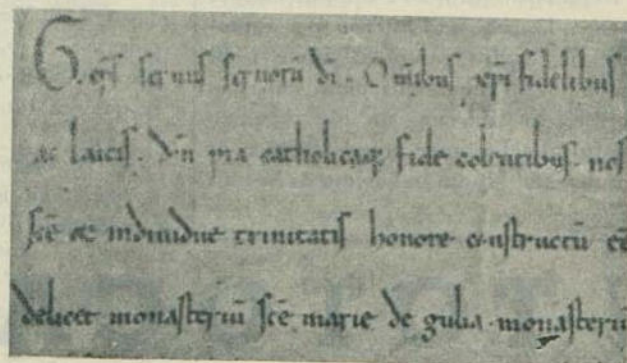 G. ep̄s seruus seruorū dī. Omībus xp̄i fidelibus
ac laicis. in pia catholicaq; fide colentibus. nos
scē ac indiuidue trinitatis honore constructū eē
delicet monasteriū scē marie de gulia. monasteriū